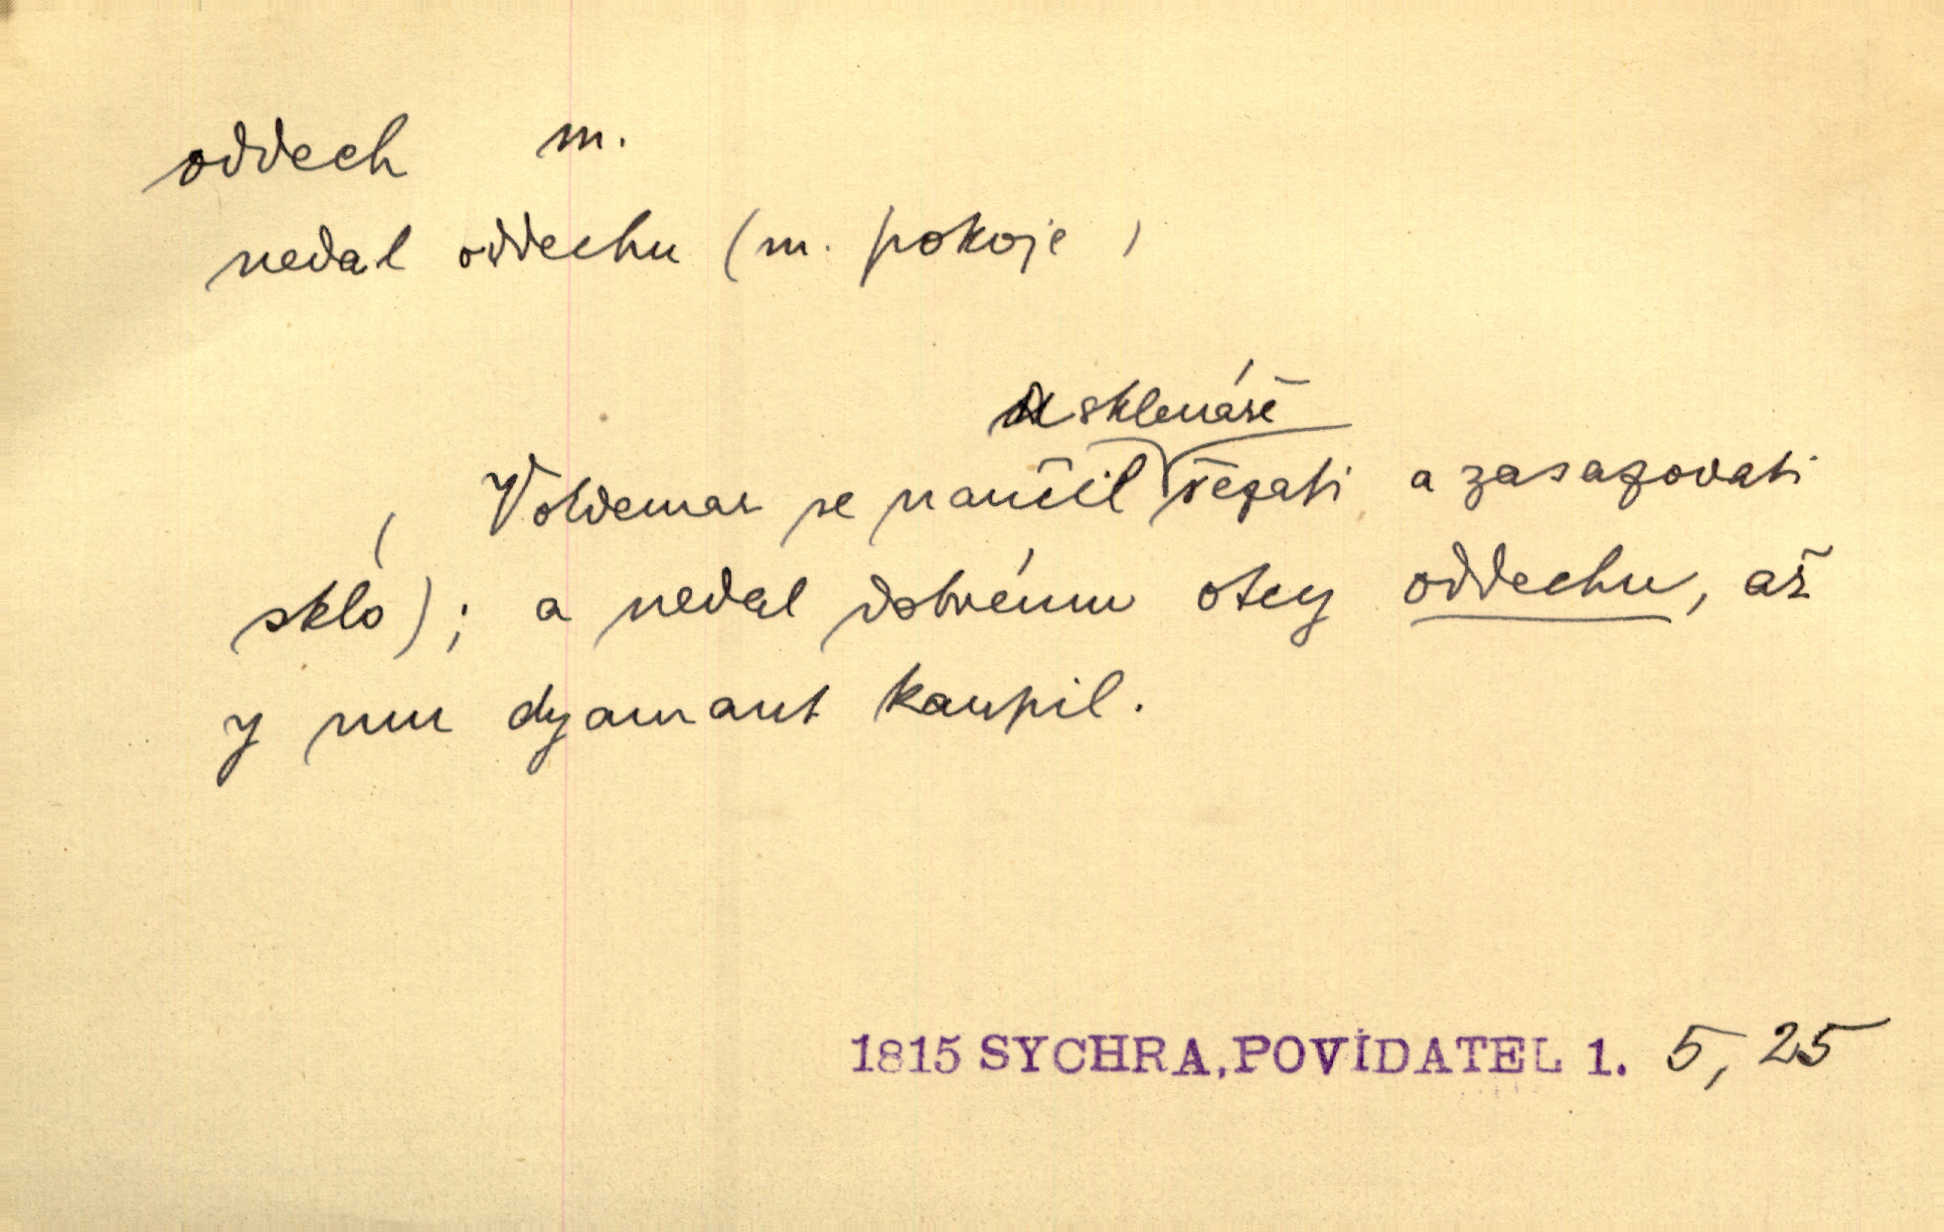 oddech m.
nedal oddechu (m. pokoje)
u sklenáře
(Voldemar se naučil řezati a zasazovati
sklo); a nedal dobrému otcy oddechu, až
y mu dyamant kaupil.
1815 SYCHRA, POVÍDATEL 1. 5, 25